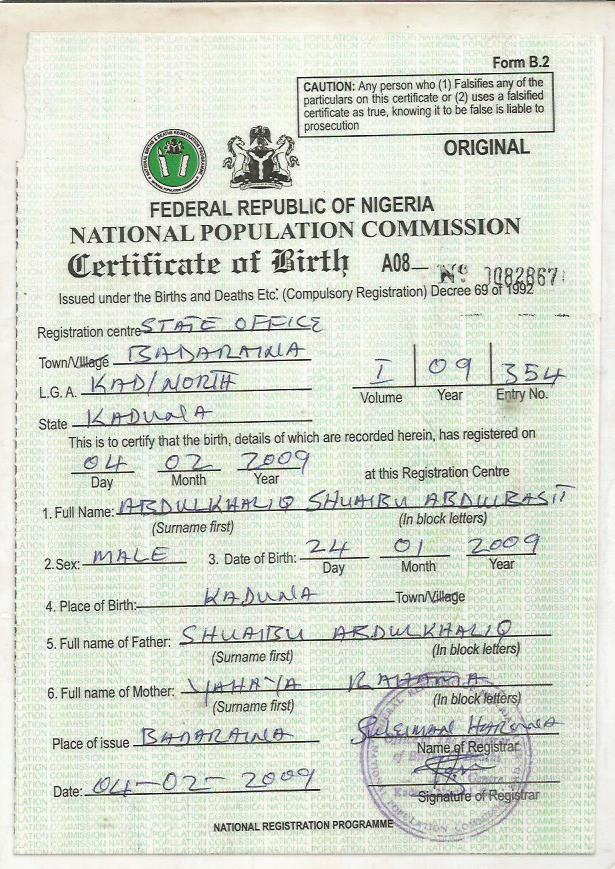 Form B.2
CAUTION: Any person who (1) Falsifies any of the
particulars on this certificate or (2) uses a falsified
certificate as true, knowing it to be false is liable to
prosecution
ORIGINAL
FEDERAL REPUBLIC OF NIGERIA
NATIONAL POPULATION COMMISSION
Certificate of Birth A08— Nº 082867
Issued under the Births and Deaths Etc: (Compulsory Registration) Decree 69 of 1992
Registration centre STATE OFFICE
Town/Village BADARAWA
L.G.A. KAD/NORTH
I 09 354
Volume Year Entry No.
State KADUNA
This is to certify that the birth, details of which are recorded herein, has registered on
04 02 2009 at this Registration Centre
Day Month Year
1. Full Name: ABDULKHALIQ SHUAIBU ABDULBASIT
(Surname first) (In block letters)
2. Sex: MALE 3. Date of Birth: 24 01 2009
Day Month Year
4. Place of Birth: KADUNA Town/Village
5. Full name of Father: SHUAIBU ABDULKHALIQ
(Surname first) (In block letters)
6. Full name of Mother: YAHAYA
(Surname first) (In block letters)
Place of issue BADARAWA SULEIMAN HARUNA
Name of Registrar
Date: 04-02-2009
Signature of Registrar
NATIONAL REGISTRATION PROGRAMME